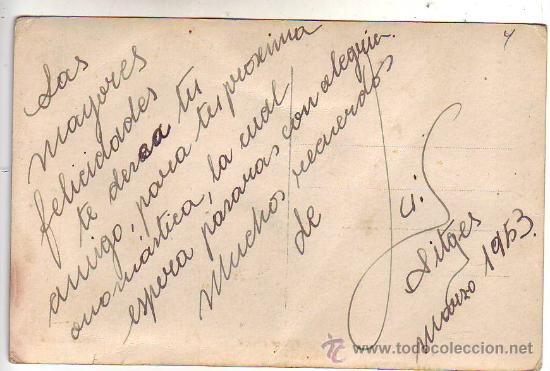 Las
mayores
felicidades
te desea tu
amigo, para tu proxima
onomástica, la cual
espera pasaras con alegria.
Muchos recuerdos
de
Sitges
Marzo 1953.
www.todocoleccion.net